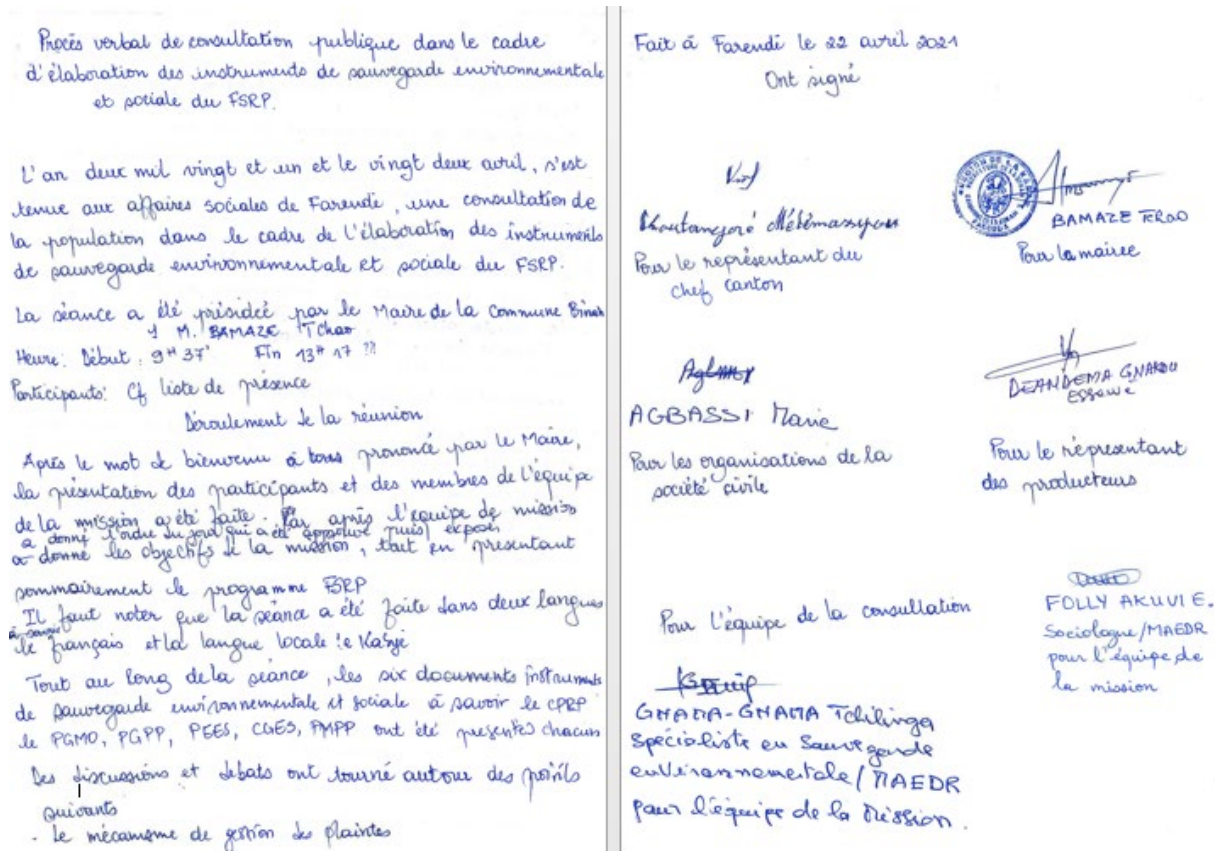 Procès verbal de consultation publique dans le cadre
d'élaboration des instruments de sauvegarde environnementale
et sociale du FSRP.
L'an deux mil vingt et un et le vingt deux avril, s'est
tenue aux affaires sociales de Farendè, une consultation de
la population dans le cadre de l'élaboration des instruments
de sauvegarde environnementale et sociale du FSRP.
La séance a été présideé par le Maire de la Commune Binah
1 M. BAMAZE Tchao
Heure: Début : 9H 37' Fin 13H 17
Participants: Cf liste de présence
Déroulement de la réunion
Après le mot de bienvenu à tous prononcé par le Maire,
la présentation des participants et des membres de l'équipe
de la mission a été faite. Par après l'equipe de mission
a donné l'ordre du jour qui a été approuvé puis exposé
a donné les objectifs de la mission, tout en presentant
sommairement le programme FSRP
Il faut noter que la séance a été faite dans deux langues
à savoir
le français et la langue locale le Kabyè
Tout au long de la séance, les six documents instruments
de sauvegarde environnementale et sociale à savoir le CPRP
le PGMO, PGPP, PEES, CGES, PMPP ont été presentés chacun
Des discussions et debats ont tourné autour des points
suivants
- Le mécanisme de gestion des plaintes
Fait à Farendè le 22 avril 2021
Ont signé
Pour le représentant du
chef canton
BAMAZE TCHAO
Pour la mairee
AGBASSI Marie
Pour les organisations de la
société civile
DEANDEMA GNAKOU
ESSOWE
Pour le représentant
des producteurs
Pour l'équipe de la consultation
GNAMA-GNAMA Tchilinga
Spécialiste en Sauvegarde
environnementale/MAEDR
pour l'équipe de la Mission.
FOLLY AKUVI E.
Sociologue/MAEDR
pour l'équipe de
la mission